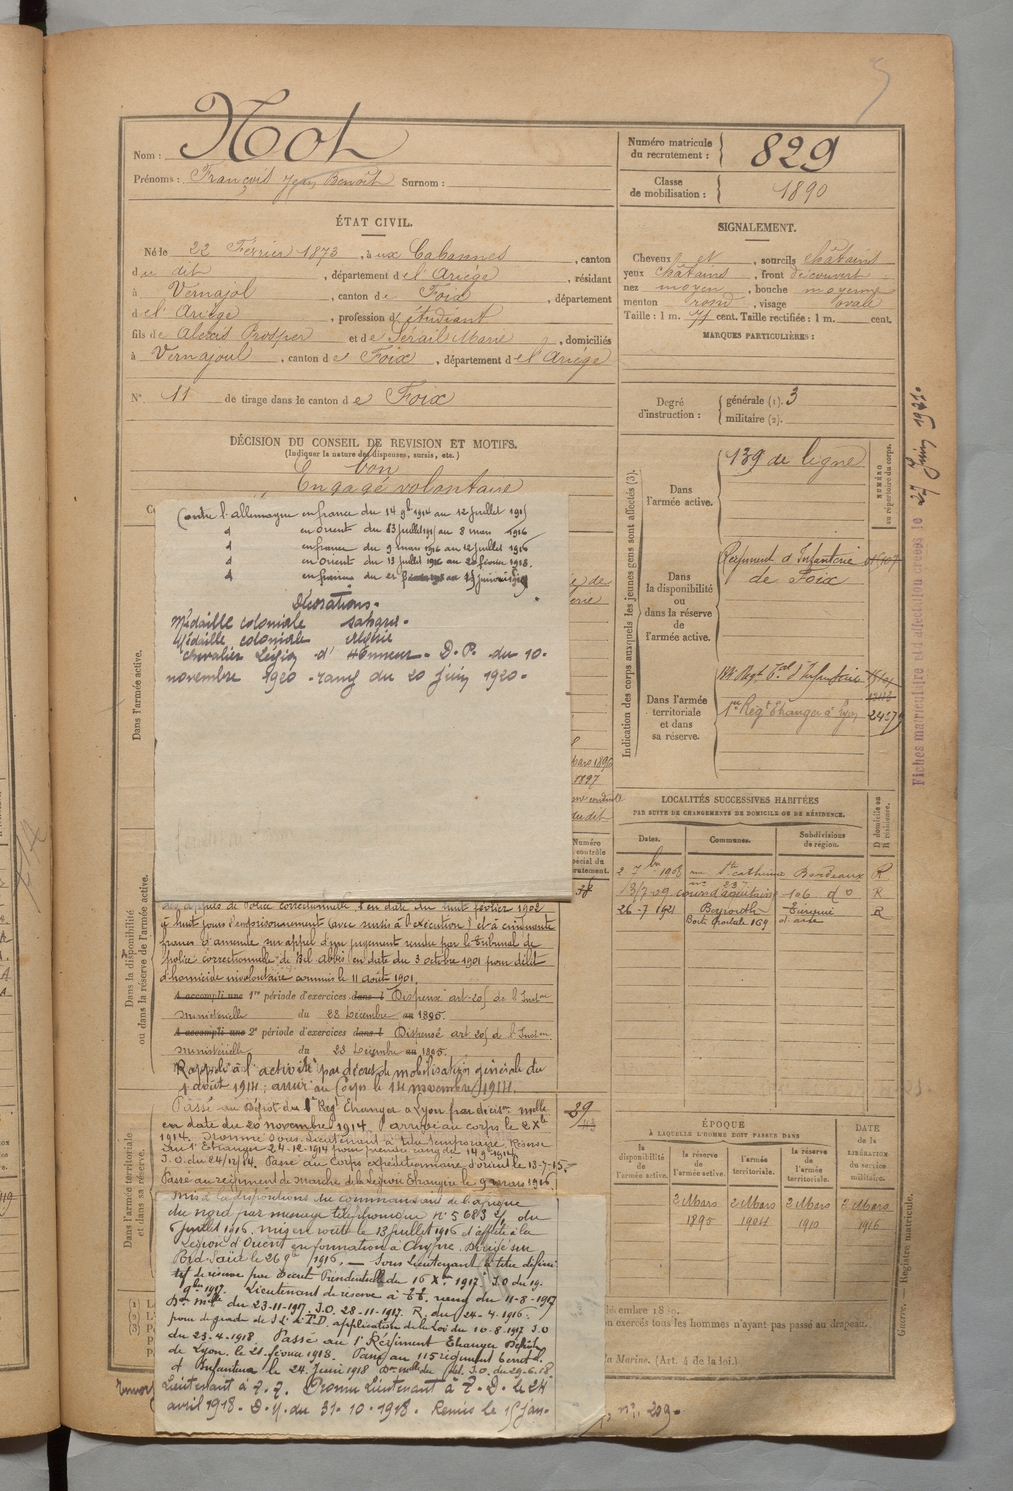 Nom : Not
Prénoms : François Jean Benoît Surnom :
Numéro matricule du recrutement : 829
Classe de mobilisation : 1890
ÉTAT CIVIL.
Né le 22 Février 1873, à aux Cabannes, canton
du dit, département de l'Ariège, résidant
à Vernajol, canton de Foix, département
d l'Ariège, profession d'étudiant
fils de Alexis Prosper et de Sérail Marie, domiciliés
à Vernajoul, canton de Foix, département de l'Ariège
N° 11 de tirage dans le canton de Foix
SIGNALEMENT.
Cheveux et, sourcils châtains
yeux châtains, front découvert
nez moyen, bouche moyenne
menton rond, visage ovale
Taille : 1 m. cent. Taille rectifiée : 1 m. cent.
MARQUES PARTICULIÈRES :
Degré d'instruction : générale (1). 3
militaire (2).
DÉCISION DU CONSEIL DE REVISION ET MOTIFS.
(Indiquer la nature des dispenses, sursis, etc.)
bon
Engagé volontaire
Contre l'allemagne en france du 14 9bre 1914 au 12 juillet 1915
d en Orient du 13 juillet 1915 au 8 mars 1916
d en france du 9 mars 1916 au 12 juillet 1916
d en Orient du 13 juillet 1916 au 20 février 1918.
d en france du 21
Décorations.
Médaille coloniale Sahara.
Médaille coloniale Algérie
Chevalier Légion d'Honneur. D. P. du 10
novembre 1920 - rang du 20 juin 1920.
Dans l'armée active.
Indication des corps auxquels les jeunes gens sont affectés (3).
NUMÉRO au répertoire du corps.
Dans l'armée active. 139 de ligne
Dans la disponibilité ou dans la réserve de l'armée active. Régiment d'Infanterie
de Foix
Dans l'armée territoriale et dans sa réserve.
1er Régt Étranger à Lyon
Fiches matriculaire et d'affectation créées le 27 Juin 1921.
LOCALITÉS SUCCESSIVES HABITÉES
PAR SUITE DE CHANGEMENTS DE DOMICILE OU DE RÉSIDENCE.
Dates. Communes. Subdivisions de région. D domicile ou R résidence.
2 7bre 1908 rue Ste catherine Bordeaux R
13/7-09 cours d'aquitaine 106 do R
26-7 1921 Beyrouth Turquie R
Boite Postale 169 d'asie
Numéro au contrôle spécial du recrutement.
Dans la disponibilité ou dans la réserve de l'armée active.
des appels de Police correctionnelle, en date du huit février 1902
à huit jours d'emprisonnement (avec sursis à l'exécution) et à cinquante
francs d'amende sur appel d'un jugement rendu par le tribunal de
police correctionnelle de Bel Abbès en date du 3 octobre 1901 pour délit
d'homicide involontaire commis le 11 août 1901.
A accompli une 1re période d'exercices dans l Dispensé art. 205 de l'Instron
ministérielle du 28 Décembre au 1895.
A accompli une 2e période d'exercices dans l Dispensé art. 205 de l'Instron
ministérielle du 28 Décembre au 1895.
Rappelé à l'activité par décret de mobilisation générale du
1 août 1914 ; arrivé au Corps le 14 novembre 1914.
Dans l'armée territoriale et dans sa réserve.
Passé au Dépôt du 1er Régt Étranger à Lyon par décison melle
en date du 20 novembre 1914. arrivé au corps le
1914. Nommé Sous-Lieutenant à titre temporaire, Réserve
au 1er Etranger 24-12-1914 pour prendre rang du 14 9bre 1914
J.O. du 24/12/14. Passé au Corps expéditionnaire d'orient le 13-7-15.
Passé au régiment de marche de la Légion étrangère le 9 mars 1916.
Mis à la disposition du commandant de l'afrique
du nord par message téléphonique n° 5683 du
juillet 1916, mis en route le 13 juillet 1916 et affecté à la
Légion d'Orient en formation à Chypre. Dirigé sur
Port-Saïd le 26 1916. — Sous Lieutenant à titre défini
tif de réserve par Décret Présidentiel du 16 Xbre 1917. J.O. du 19.
Lieutenant de réserve à T.T. rang du 11-8-1917
Don mlle du 23-11-1917. J.O. 28-11-1917. R. du 24-4-1916
application de la Loi du 10-8-1917 J.O
du 23-4-1918 Passé au 1er Régiment Etranger Dépôt
de Lyon le 21 février 1918. Passé au 115 régiment territl
d'Infanterie le 24 Juin 1918 J.O. du 29-6-18
Lieutenant à T.T. Promu Lieutenant à T.D. le 24
avril 1918. D.M. du 31.10.1918. Remis le 15 Jan.
ÉPOQUE
À LAQUELLE L'HOMME DOIT PASSER DANS
la disponibilité de l'armée active. la réserve de l'armée active. l'armée territoriale. la réserve de l'armée territoriale. DATE de la LIBÉRATION du service militaire.
2 Mars 1895 2 Mars 1904 2 Mars 1910 2 Mars 1916
Guerre. Registre matricule.
on exercés tous les hommes n'ayant pas passé au drapeau.
la Marine. (Art. 4 de la loi.)
n° 209.